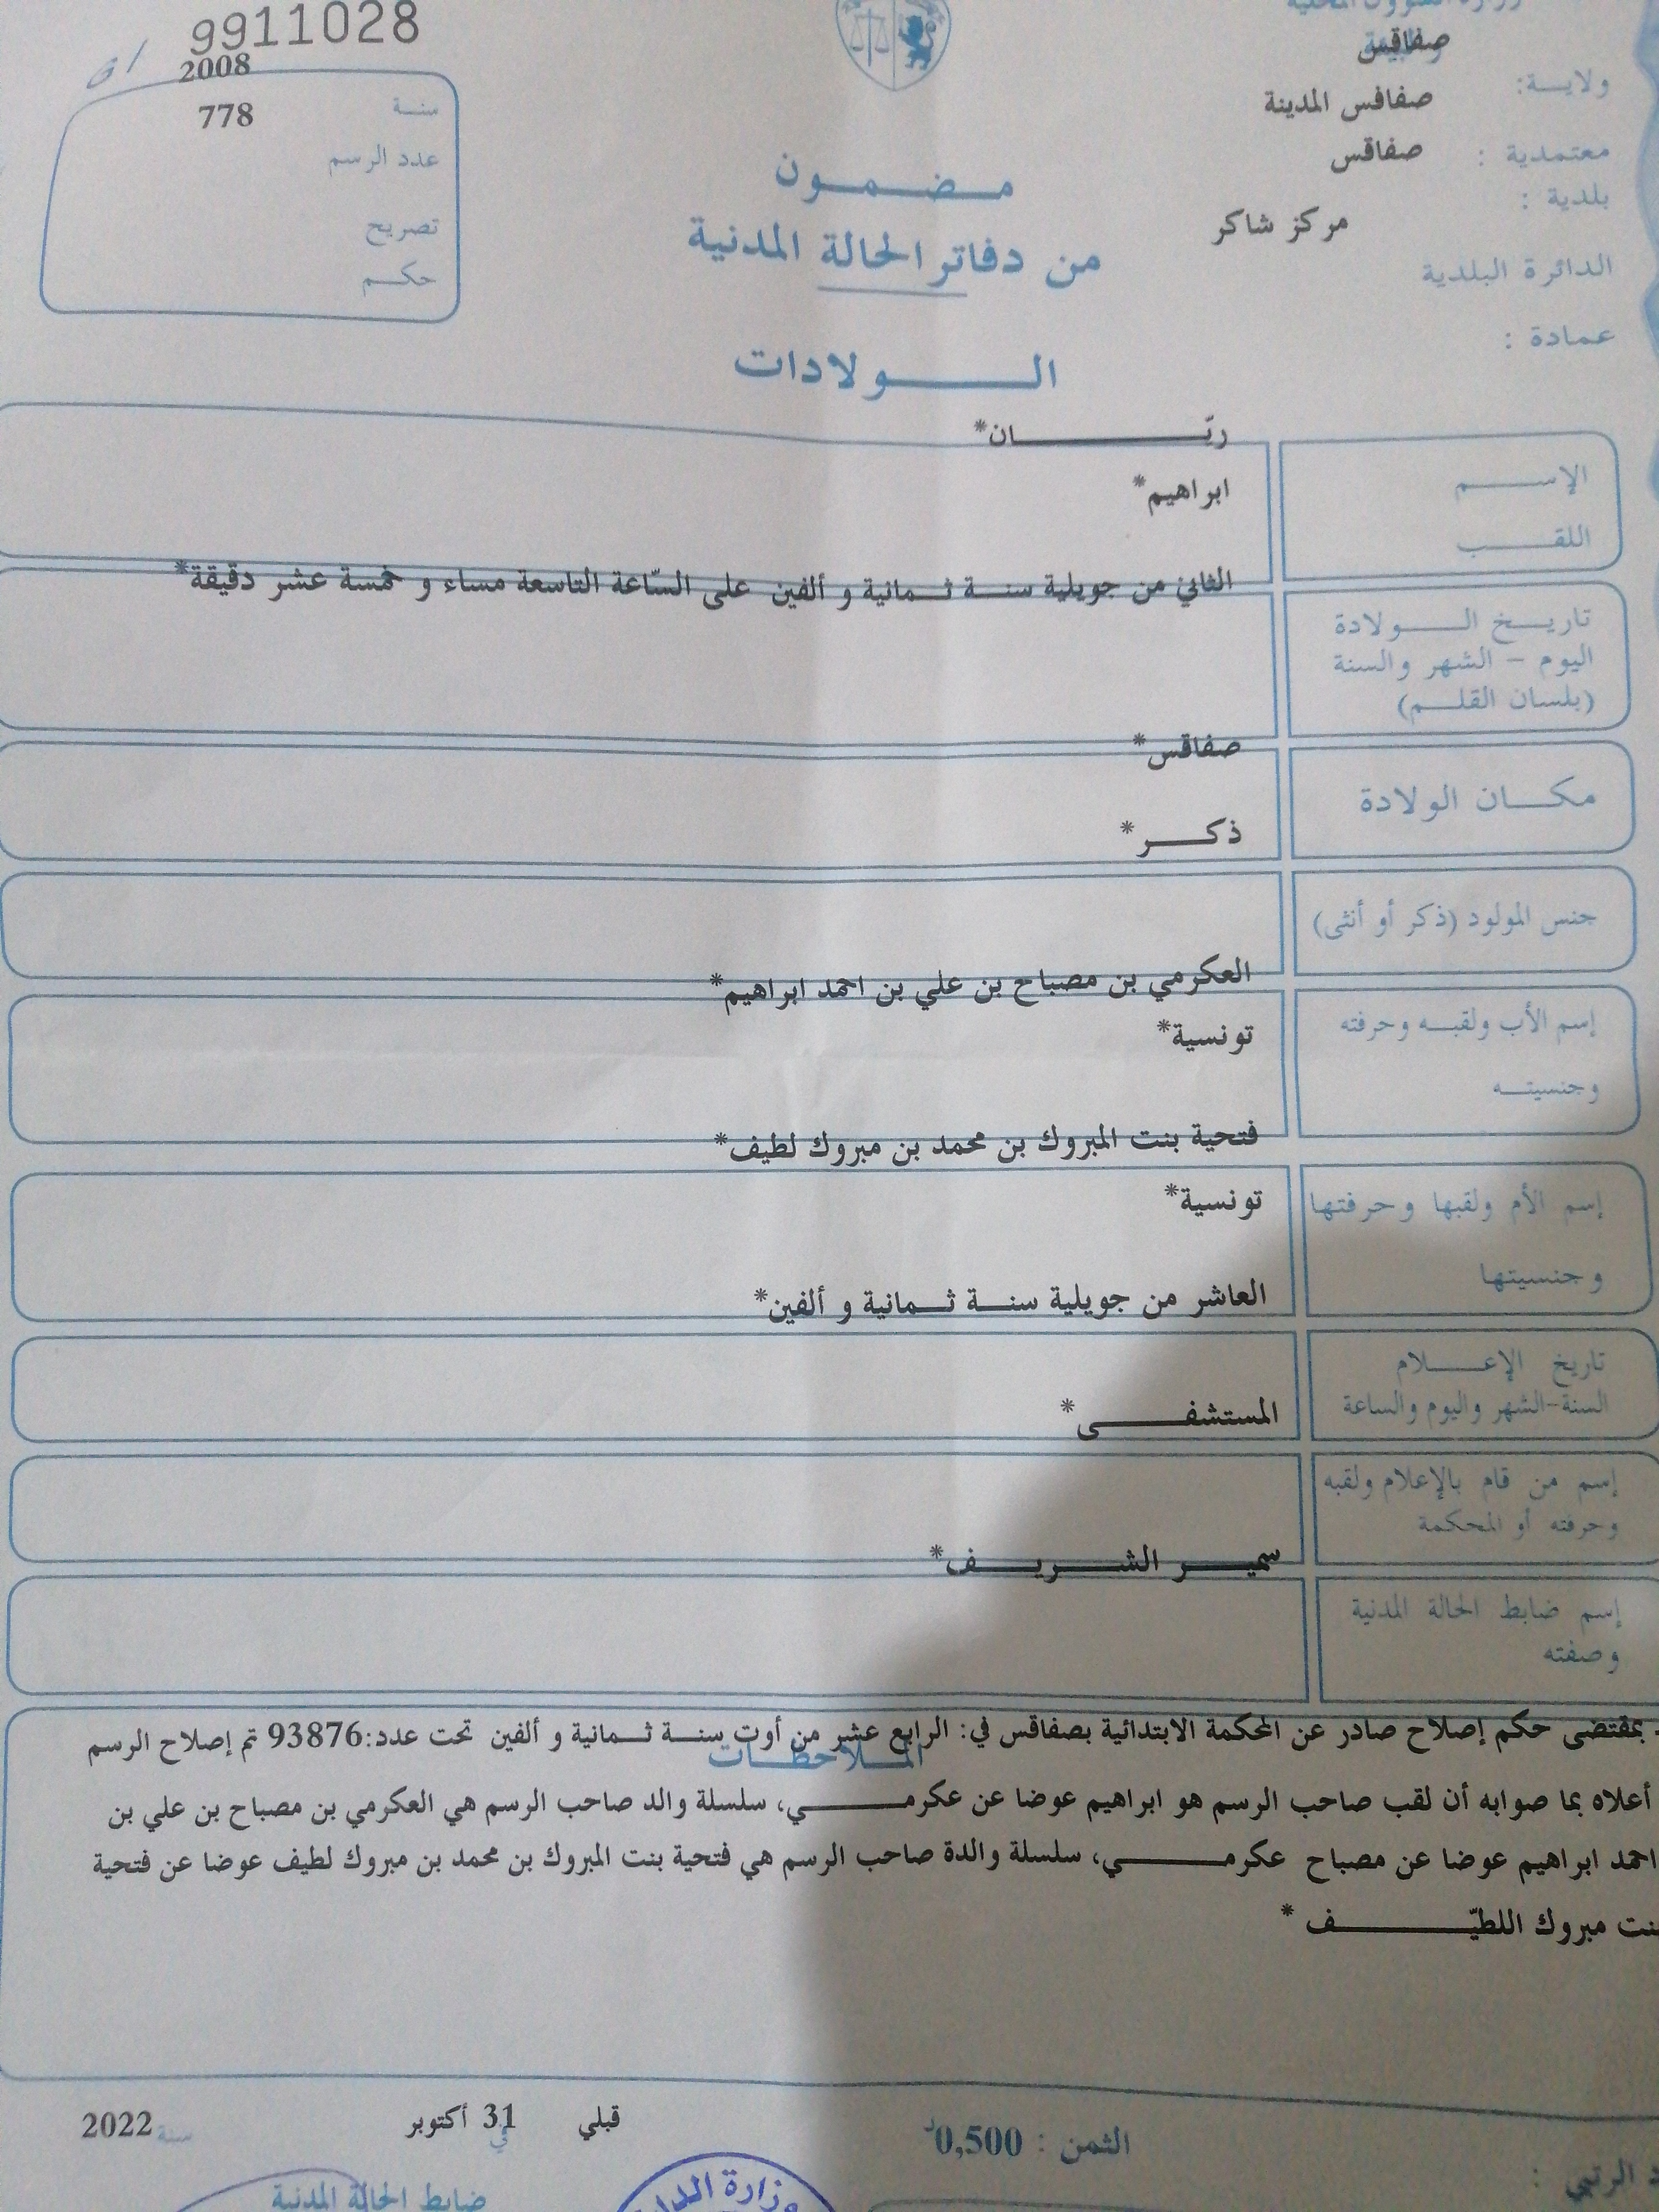 9911028
2008
سنة
778
عدد الرسم
تصريح
حكم
صفاقس
ولاية:
صفاقس المدينة
معتمدية :
صفاقس
بلدية :
مركز شاكر
الدائرة البلدية
عمادة :
مضمون
من دفاتر الحالة المدنية
الولادات
ريّان*
الإسم
ابراهيم*
اللقب
الثاني من جويلية سنة ثمانية و ألفين على السّاعة التاسعة مساء و خمسة عشر دقيقة*
تاريخ الولادة
اليوم – الشهر والسنة
(بلسان القلم)
صفاقس*
مكان الولادة
ذكر*
جنس المولود (ذكر أو أنثى)
العكرمي بن مصباح بن علي بن احمد ابراهيم*
إسم الأب ولقبه وحرفته
تونسية*
وجنسيته
فتحية بنت المبروك بن محمد بن مبروك لطيف*
تونسية*
إسم الأم ولقبها وحرفتها
وجنسيتها
العاشر من جويلية سنة ثمانية و ألفين*
تاريخ الإعلام
السنة-الشهر واليوم والساعة
المستشفى*
إسم من قام بالإعلام ولقبه
وحرفته أو المحكمة
سمير الشريف*
إسم ضابط الحالة المدنية
وصفته
. بمقتضى حكم إصلاح صادر عن المحكمة الابتدائية بصفاقس في: الرابع عشر من أوت سنة ثمانية و ألفين تحت عدد:93876 تم إصلاح الرسم
الملاحظات
أعلاه بما صوابه أن لقب صاحب الرسم هو ابراهيم عوضا عن عكرمي، سلسلة والد صاحب الرسم هي العكرمي بن مصباح بن علي بن
احمد ابراهيم عوضا عن مصباح عكرمي، سلسلة والدة صاحب الرسم هي فتحية بنت المبروك بن محمد بن مبروك لطيف عوضا عن فتحية
بنت مبروك اللطيّف *
قبلي في 31 أكتوبر سنة 2022
الثمن : 0,500د
ضابط الحالة المدنية